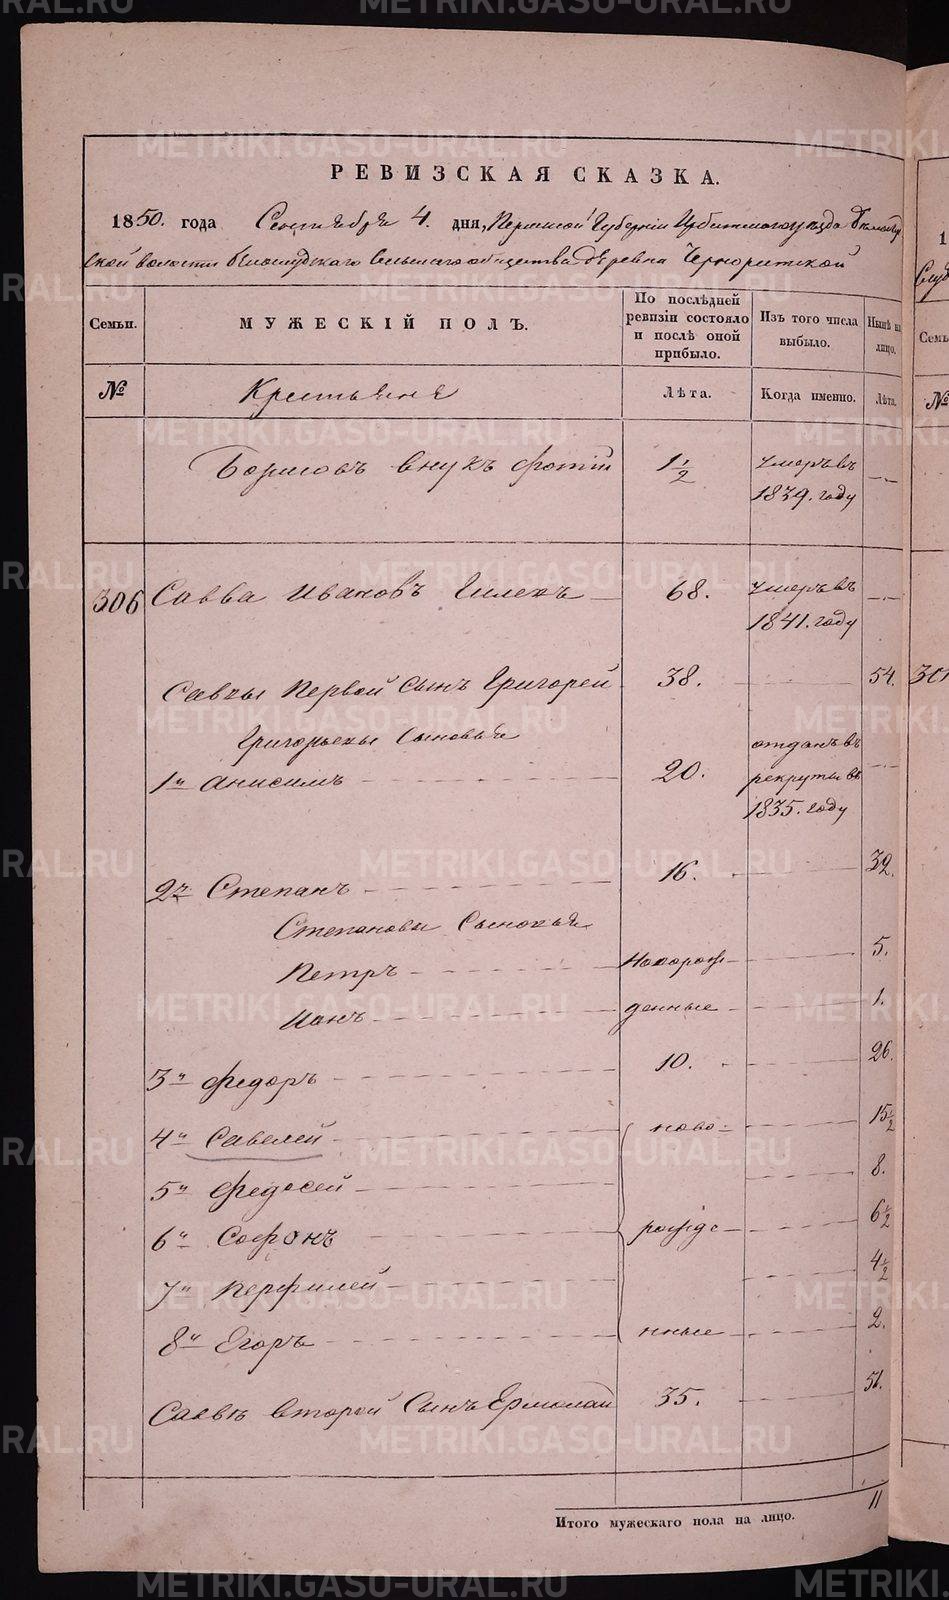 РЕВИЗСКАЯ СКАЗКА.
1850. года Сентября 4. дня, Пермской Губерніи Ирбитского уѣзда
ской волости сельского общества деревни
Семьи. МУЖЕСКІЙ ПОЛЪ. По послѣдней ревизіи состояло и послѣ оной прибыло. Изъ того числа выбыло. Нынѣ на лицо.
№ Крестьяне Лѣта. Когда именно. Лѣта.
Борисовъ внукъ Фотій 1 1/2 умеръ въ
1839. году
306 Савва Ивановъ 68. умеръ въ
1841. году
Саввы первой сынъ Григорей 38. 54.
Григорьевы сыновья отданъ въ
1й Анисимъ 20. рекруты въ
1835. году
2й Степанъ 16. 32.
Степановы сыновья
Петръ новорож- 5.
Иванъ денные 1.
3й Федоръ 10. 26.
4й Савелей ново- 15 1/2
5й Федосей 8.
6й Софонъ рожде- 6 1/2
7й Перфилей 4 1/2
8й Егоръ нные 2.
Саввы второй сынъ Ермолай 35. 51.
Итого мужескаго пола на лицо. 11
METRIKI.GASO-URAL.RU